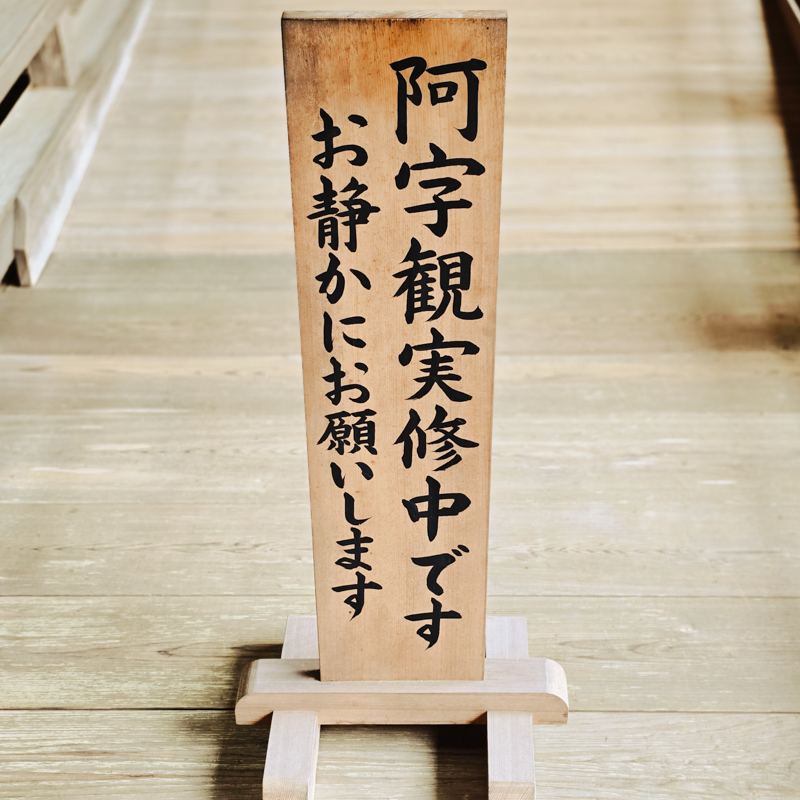 阿字観実修中です
お静かにお願いします